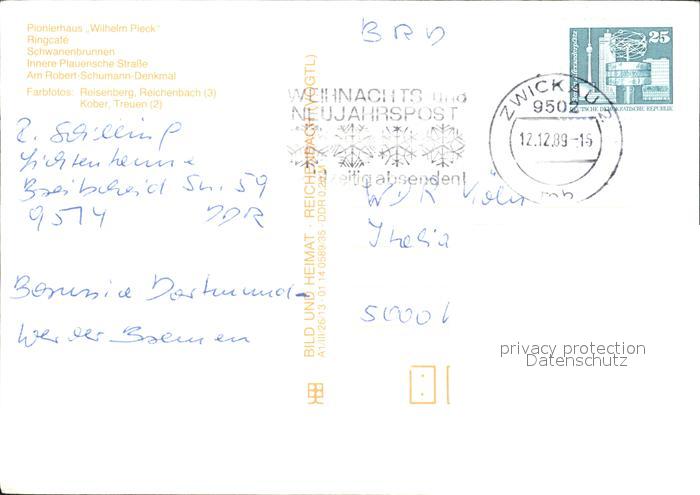 Pionierhaus „Wilhelm Pieck"
Ringcafé
Schwanenbrunnen
Innere Plauensche Straße
Am Robert-Schumann-Denkmal
Farbfotos: Reisenberg, Reichenbach (3)
Kober, Treuen (2)
BRD
25
DEUTSCHE DEMOKRATISCHE REPUBLIK
WEIHNACHTS und
NEUJAHRSPOST
zeitig absenden!
ZWICKAU 2
9502
12.12.89-15
mb
Breitscheid Str. 59
9514 DDR
Borussia Dortmund-
Werder Bremen
WDR Köln
5000 1
BILD UND HEIMAT · REICHENBACH (VOGTL)
A1/III/26/13
privacy protection
Datenschutz